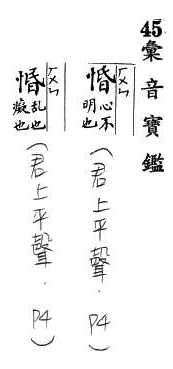 45彙音寶鑑
惛 ㄏㄨㄣ
心不
明也
(君上平聲. P4)
惽 ㄏㄨㄣ
乱也
癡也
(君上平聲. P4)